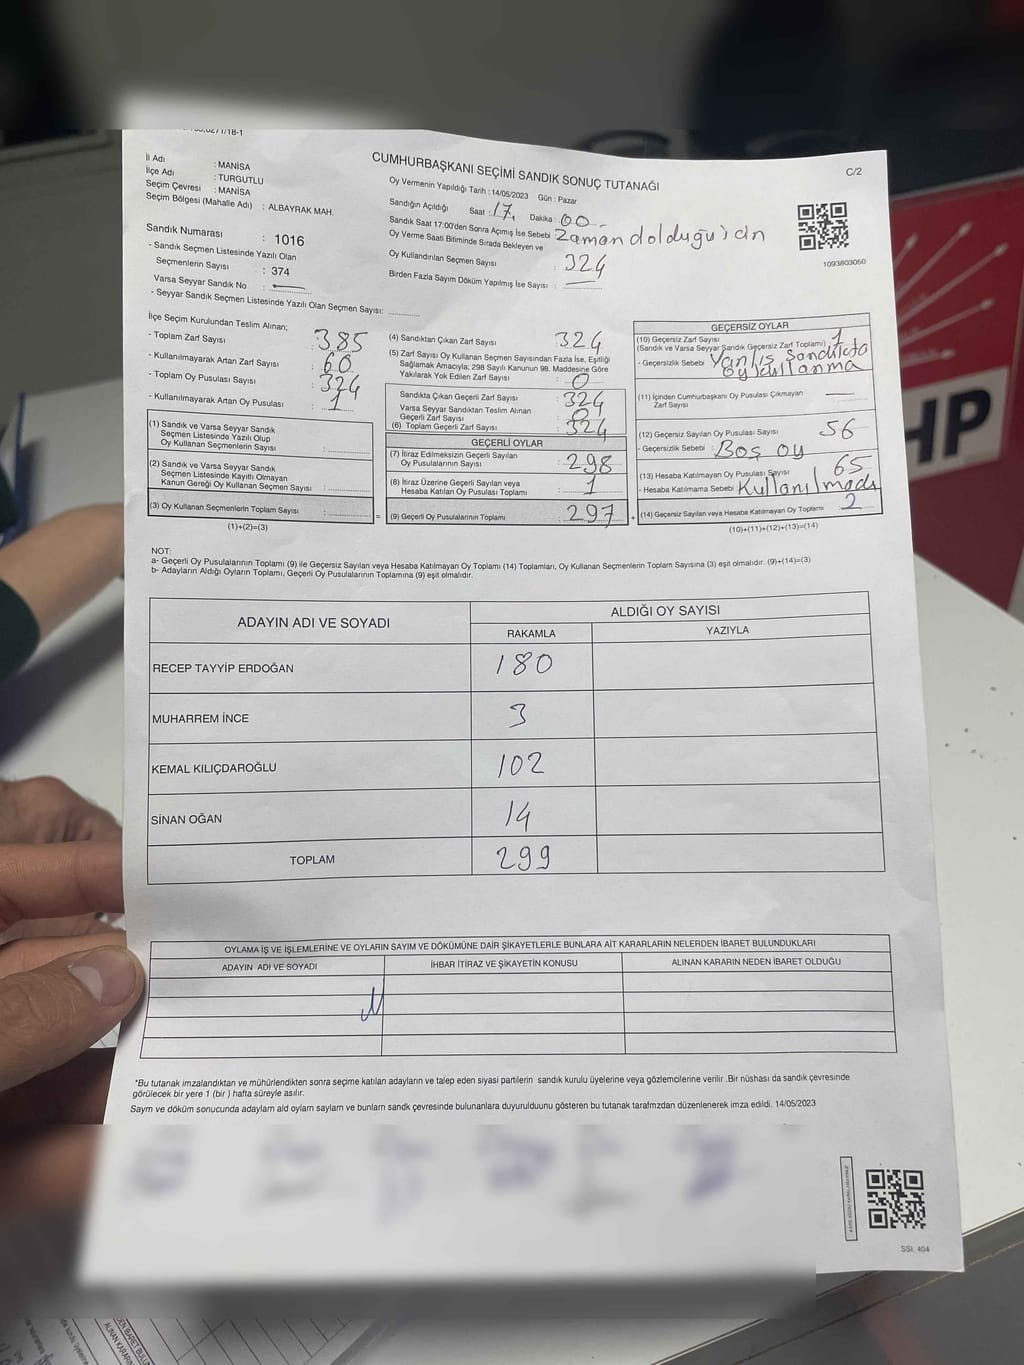 CUMHURBAŞKANI SEÇİMİ SANDIK SONUÇ TUTANAĞI
C/2
İl Adı : MANİSA
İlçe Adı : TURGUTLU
Seçim Çevresi : MANİSA
Seçim Bölgesi (Mahalle Adı) : ALBAYRAK MAH.
Sandık Numarası : 1016
- Sandık Seçmen Listesinde Yazılı Olan
Seçmenlerin Sayısı : 374
Varsa Seyyar Sandık No :
- Seyyar Sandık Seçmen Listesinde Yazılı Olan Seçmen Sayısı:
Oy Vermenin Yapıldığı Tarih : 14/05/2023 Gün : Pazar
Sandığın Açıldığı Saat : 17, Dakika : 00
Sandık Saat 17:00'den Sonra Açımış İse Sebebi Zaman dolduğu için
Oy Verme Saati Bitiminde Sırada Bekleyen ve
Oy Kullandırılan Seçmen Sayısı : 324
Birden Fazla Sayım Döküm Yapılmış İse Sayısı :
1093803050
İlçe Seçim Kurulundan Teslim Alınan;
- Toplam Zarf Sayısı : 385
- Kullanılmayarak Artan Zarf Sayısı : 60
- Toplam Oy Pusulası Sayısı : 324
- Kullanılmayarak Artan Oy Pusulası : 1
(1) Sandık ve Varsa Seyyar Sandık
Seçmen Listesinde Yazılı Olup
Oy Kullanan Seçmenlerin Sayısı :
(2) Sandık ve Varsa Seyyar Sandık
Seçmen Listesinde Kayıtlı Olmayan
Kanun Gereği Oy Kullanan Seçmen Sayısı :
(3) Oy Kullanan Seçmenlerin Toplam Sayısı :
(1)+(2)=(3)
(4) Sandıktan Çıkan Zarf Sayısı : 324
(5) Zarf Sayısı Oy Kullanan Seçmen Sayısından Fazla İse, Eşitliği
Sağlamak Amacıyla; 298 Sayılı Kanunun 98. Maddesine Göre
Yakılarak Yok Edilen Zarf Sayısı : 0
Sandıkta Çıkan Geçerli Zarf Sayısı : 324
Varsa Seyyar Sandıktan Teslim Alınan
Geçerli Zarf Sayısı : 0
(6) Toplam Geçerli Zarf Sayısı : 324
GEÇERLİ OYLAR
(7) İtiraz Edilmeksizin Geçerli Sayılan
Oy Pusulalarının Sayısı : 298
(8) İtiraz Üzerine Geçerli Sayılan veya
Hesaba Katılan Oy Pusulası Toplamı : 1
(9) Geçerli Oy Pusulalarının Toplamı : 297
GEÇERSİZ OYLAR
(10) Geçersiz Zarf Sayısı 1
(Sandık ve Varsa Seyyar Sandık Geçersiz Zarf Toplamı)
- Geçersizlik Sebebi Yanlış Sandıkta
Oy kullanma
(11) İçinden Cumhurbaşkanı Oy Pusulası Çıkmayan
Zarf Sayısı
(12) Geçersiz Sayılan Oy Pusulası Sayısı 56
- Geçersizlik Sebebi : Boş oy
(13) Hesaba Katılmayan Oy Pusulası Sayısı 65
- Hesaba Katılmama Sebebi Kullanılmadı
(14) Geçersiz Sayılan veya Hesaba Katılmayan Oy Toplamı 2
(10)+(11)+(12)+(13)=(14)
NOT:
a- Geçerli Oy Pusulalarının Toplamı (9) ile Geçersiz Sayılan veya Hesaba Katılmayan Oy Toplamı (14) Toplamları, Oy Kullanan Seçmenlerin Toplam Sayısına (3) eşit olmalıdır. (9)+(14)=(3)
b- Adayların Aldığı Oyların Toplamı, Geçerli Oy Pusulalarının Toplamına (9) eşit olmalıdır.
ADAYIN ADI VE SOYADI
ALDIĞI OY SAYISI
RAKAMLA YAZIYLA
RECEP TAYYİP ERDOĞAN 180
MUHARREM İNCE 3
KEMAL KILIÇDAROĞLU 102
SİNAN OĞAN 14
TOPLAM 299
OYLAMA İŞ VE İŞLEMLERİNE VE OYLARIN SAYIM VE DÖKÜMÜNE DAİR ŞİKAYETLERLE BUNLARA AİT KARARLARIN NELERDEN İBARET BULUNDUKLARI
ADAYIN ADI VE SOYADI İHBAR İTİRAZ VE ŞİKAYETİN KONUSU ALINAN KARARIN NEDEN İBARET OLDUĞU
*Bu tutanak imzalandıktan ve mühürlendikten sonra seçime katılan adayların ve talep eden siyasi partilerin sandık kurulu üyelerine veya gözlemcilerine verilir .Bir nüshası da sandık çevresinde
görülecek bir yere 1 (bir ) hafta süreyle asılır.
Sayım ve döküm sonucunda adaylarn ald oylarn saylarn ve bunlarn sandk çevresinde bulunanlara duyurulduunu gösteren bu tutanak tarafmzdan düzenlenerek imza edildi. 14/05/2023
SSI. 404
HP